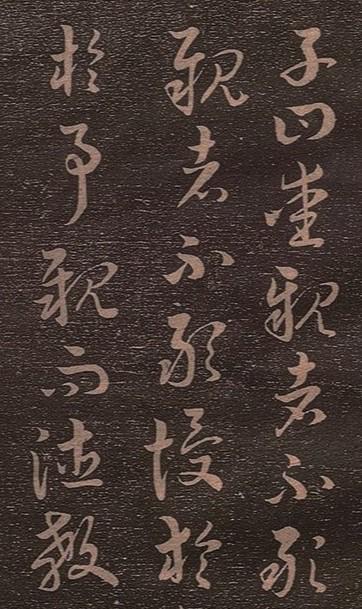 子曰愛親者不敢
親者不敢慢於
於事親而德教